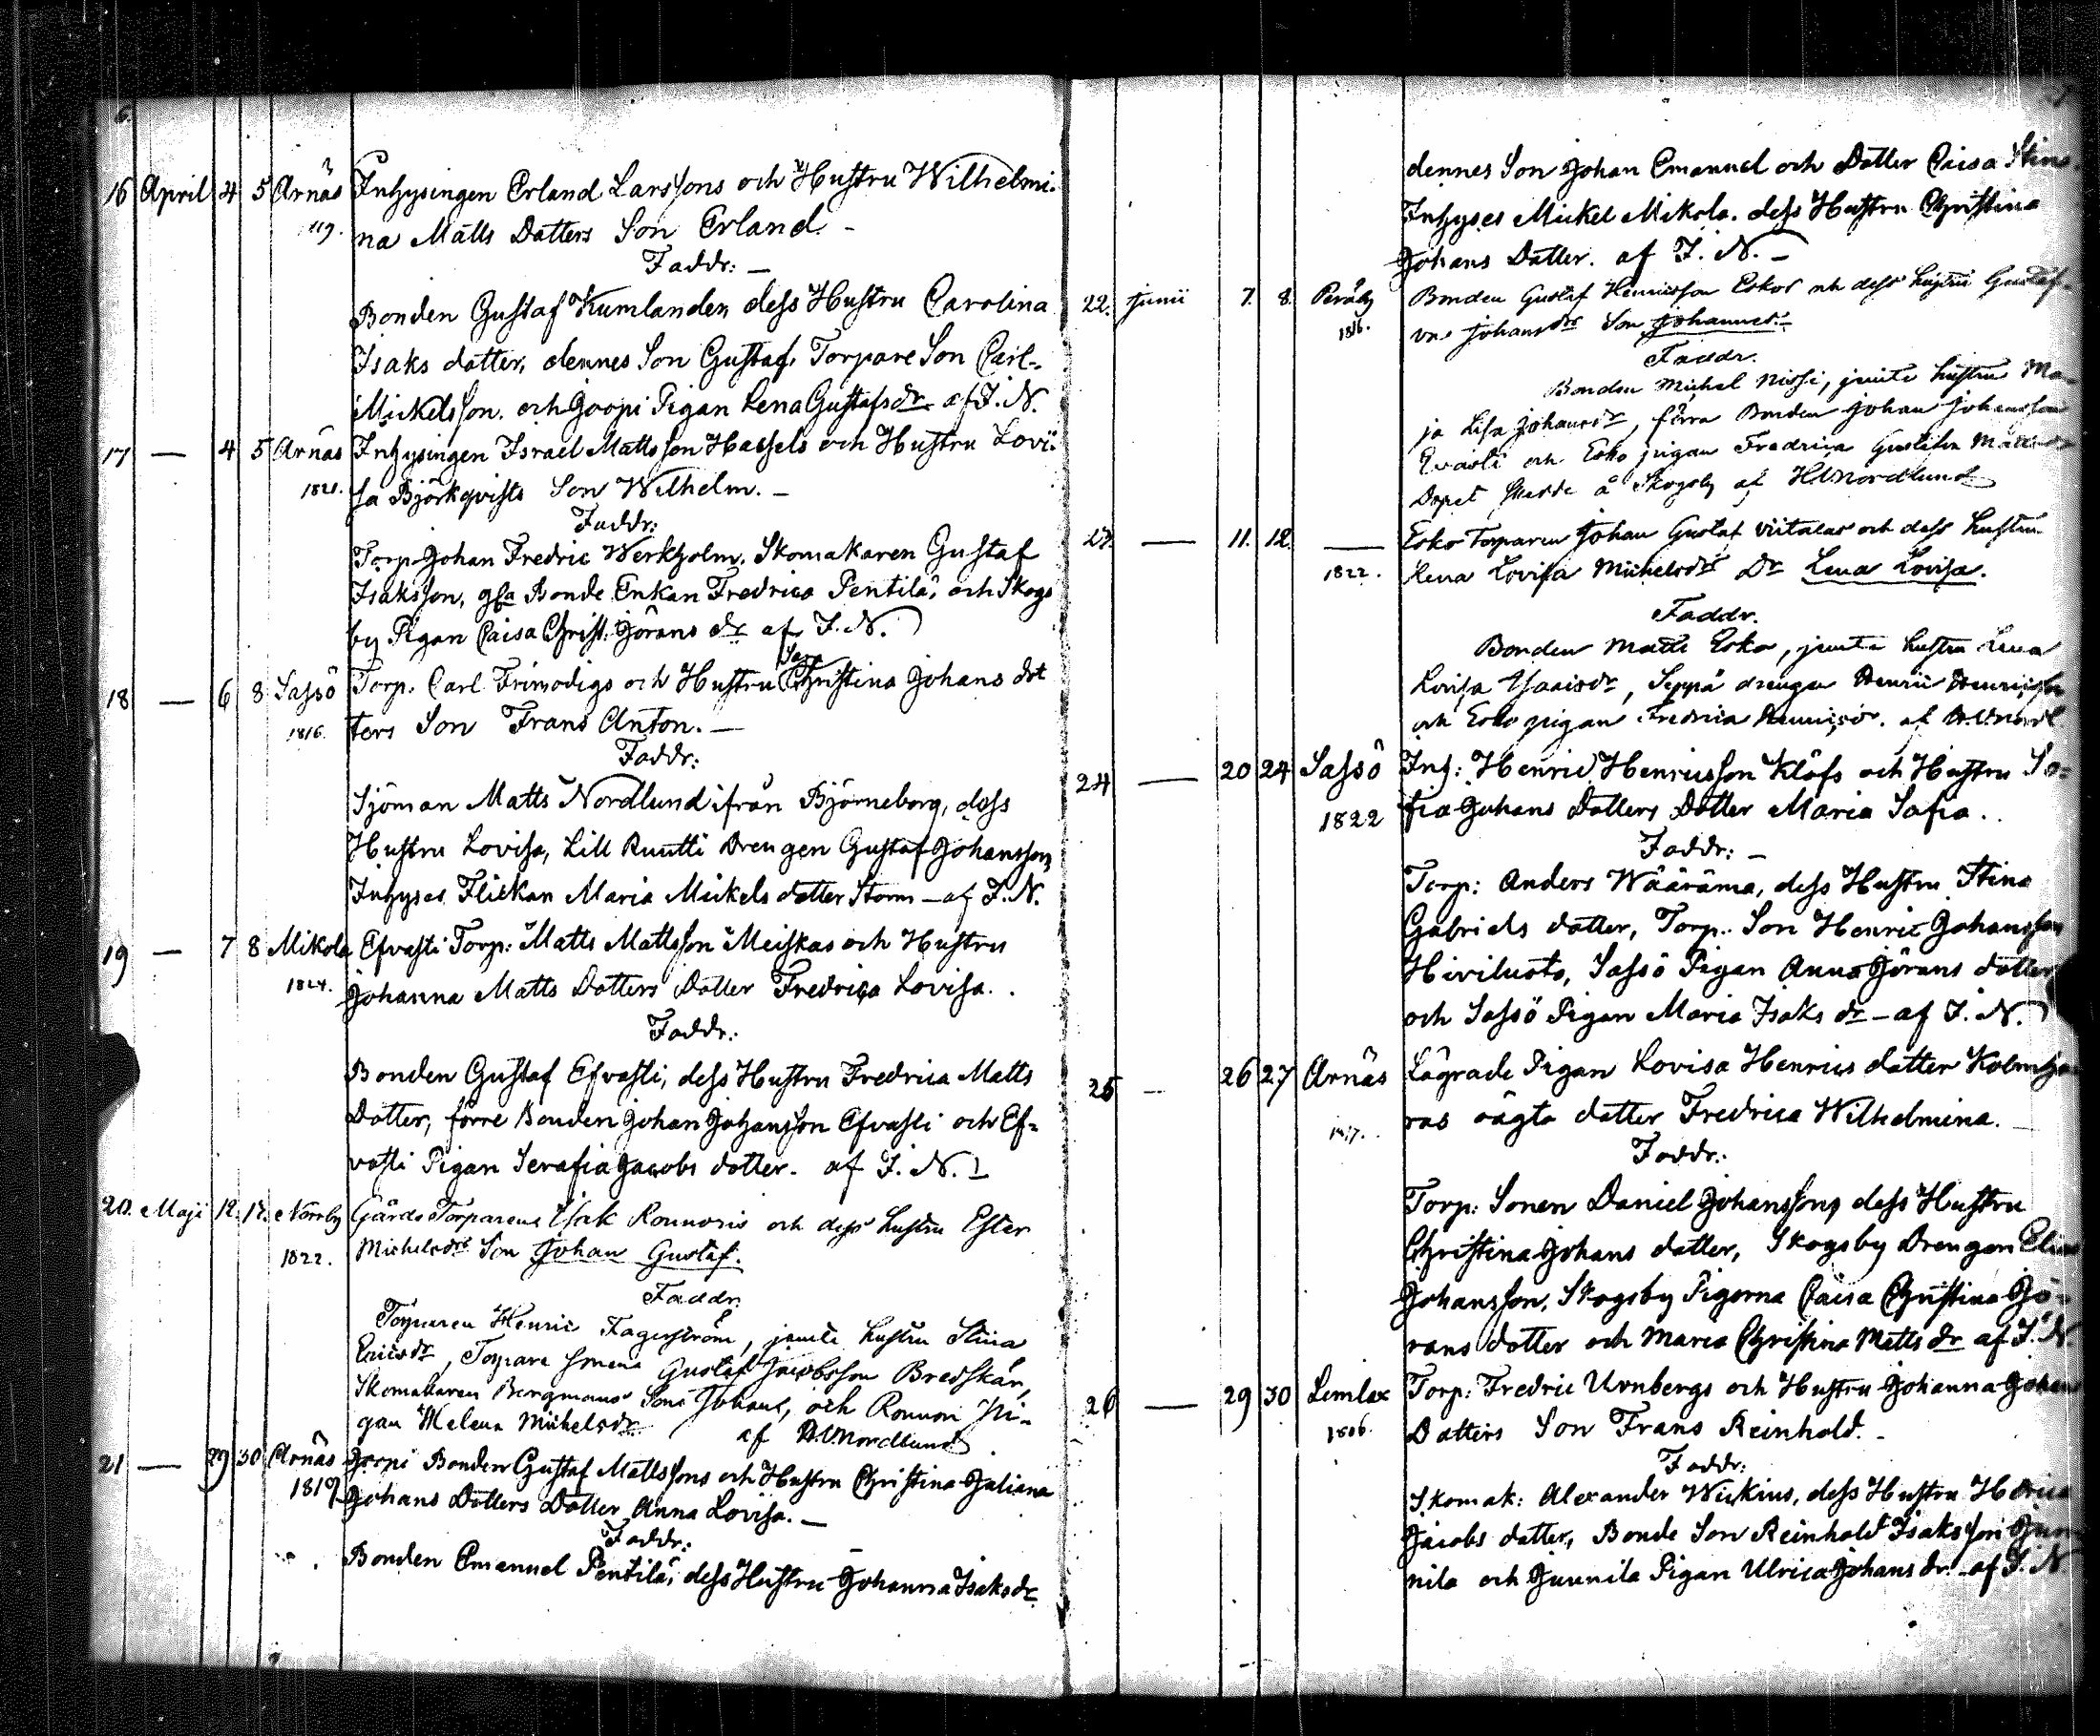 6.
16 April 4 5 Arnäs Inhysingen Erland Larssons och Hustru Wilhelmi-
119. na Matts Datters Son Erland. -
Faddr: -
Bonden Gustaf Kumlander, dess Hustru Carolina
Isaks datter, dennes Son Gustaf, Torpare Son Carl
Mickelsson. och Joopi Pigan Lena Gustafsdr af J. N.
17 - 4 5 Arnäs Inhysingen Israel Mattsson Hassels och Hustru Lovi-
1821. sa Björkqvists Son Wilhelm. -
Faddr:
Torp Johan Fredric Werkholm, Skomakaren Gustaf
Isaksson, gla Bonde Enkan Fredrica Pentilä, och Skogs
by Pigan Caisa Christ. Jörans dr af J. N.
Sara
18 - 6 8 Sassö Torp. Carl Frimodigs och Hustru Christina Johans dot
1816. ters Son Frans Anton. -
Faddr:
Sjöman Matts Nordlund ifrån Björneborg, dess
Hustru Lovisa, Lill Ruutti Drengen Gustaf Johansson,
Inhyses Flickan Maria Mickels datter Storm - af J. N.
19 - 7 8 Mikola Efvasti Torp: Matts Mattsson Meiskas och Hustru
1824. Johanna Matts Datters Datter Fredrica Lovisa. .
Faddr:
Bonden Gustaf Efvasti, dess Hustru Fredrica Matts
Datter, förre Bonden Johan Johansson Efvasti och Ef-
vasti Pigan Serafia Jacobs datter. af J. N.
20. Maji 12. 17. Norrby Gårds Torparens Isak Rounoris och dess hustru Ester
1822. Michelsdrs Son Johan Gustaf.
Faddr.
Torparen Henric Fagerström, jemte hustru Stina
Ericsdr, Torpare sonena Gustaf Jacobsson Bredskär,
Skomakaren Bergmans Son Johan, och Rounon Pi-
gan Helena Michelsdr af H.U.Nordlund
21 - 29 30 Arnäs Joopi Bonden Gustaf Mattssons och Hustru Christina Juliana
1819 Johans Datters Datter Anna Lovisa. -
Faddr:
Bonden Emanuel Pentilä, dess Hustru Johanna Isaksdr
dennes Son Johan Emanuel och Datter Caisa Stina
Inhyses Mickel Mikola. dess Hustru Christina
Johans Datter. af J. N. -
22. Junii 7. 8. Peräby Bonden Gustaf Henricsson Eskos och dess hustru Gustaf-
1816. va Johansdrs Son Johannes.
Faddr.
Bonden Michel Nissi, jemte hustru Ma-
ja Lisa Johansdr, förra Bonden Johan Johansson
Evasti och Esko pigan Fredrica Gustafva Matts
Dopet skedde å Skogsby af H.U.Nordlund
23. - 11. 12. - Esko Torparen Johan Gustaf Viitalas och dess hustru
1822. Lena Lovisa Michelsdrs Dr Lena Lovisa.
Faddr.
Bonden Matts Esko, jemte hustru Lena
Lovisa Isaacsdr, Seppä drengen Henric Henricsson
och Esko pigan Fredrica Henricsdr. af H.U.Nordl
24 - 20 24 Sassö Inh: Henric Henricsson Klåfs och Hustru So-
1822 fia Johans Datters Datter Maria Safia. .
Faddr: -
Torp: Anders Wääräma, dess Hustru Stina
Gabriels datter, Torp. Son Henric Johansson
Hiviluoto, Sassö Pigan Anna Jörans datter
och Sassö Pigan Maria Isaks dr - af J. N.
25 - 26 27 Arnäs Lägrade Pigan Lovisa Henrics datter
1817. ras oägta datter Fredrica Wilhelmina. -
Faddr:
Torp: Sonen Daniel Johansson, dess Hustru
Christina Johans datter, Skogsby Drengen Elias
Johansson, Skogsby Pigorna Caisa Christina Jö-
rans dotter och Maria Christina Matts dr af J. N
26 - 29 30 Lemlax Torp: Fredric Urnbergs och Hustru Johanna Johans
1806. Datters Son Frans Reinhold. -
Faddr:
Skomak: Alexander Wickius, dess Hustru Hedvica
Jacobs datter, Bonde Son Reinhold Isaksson Jun
nila och Junnila Pigan Ulrica Johans dr. af J. N